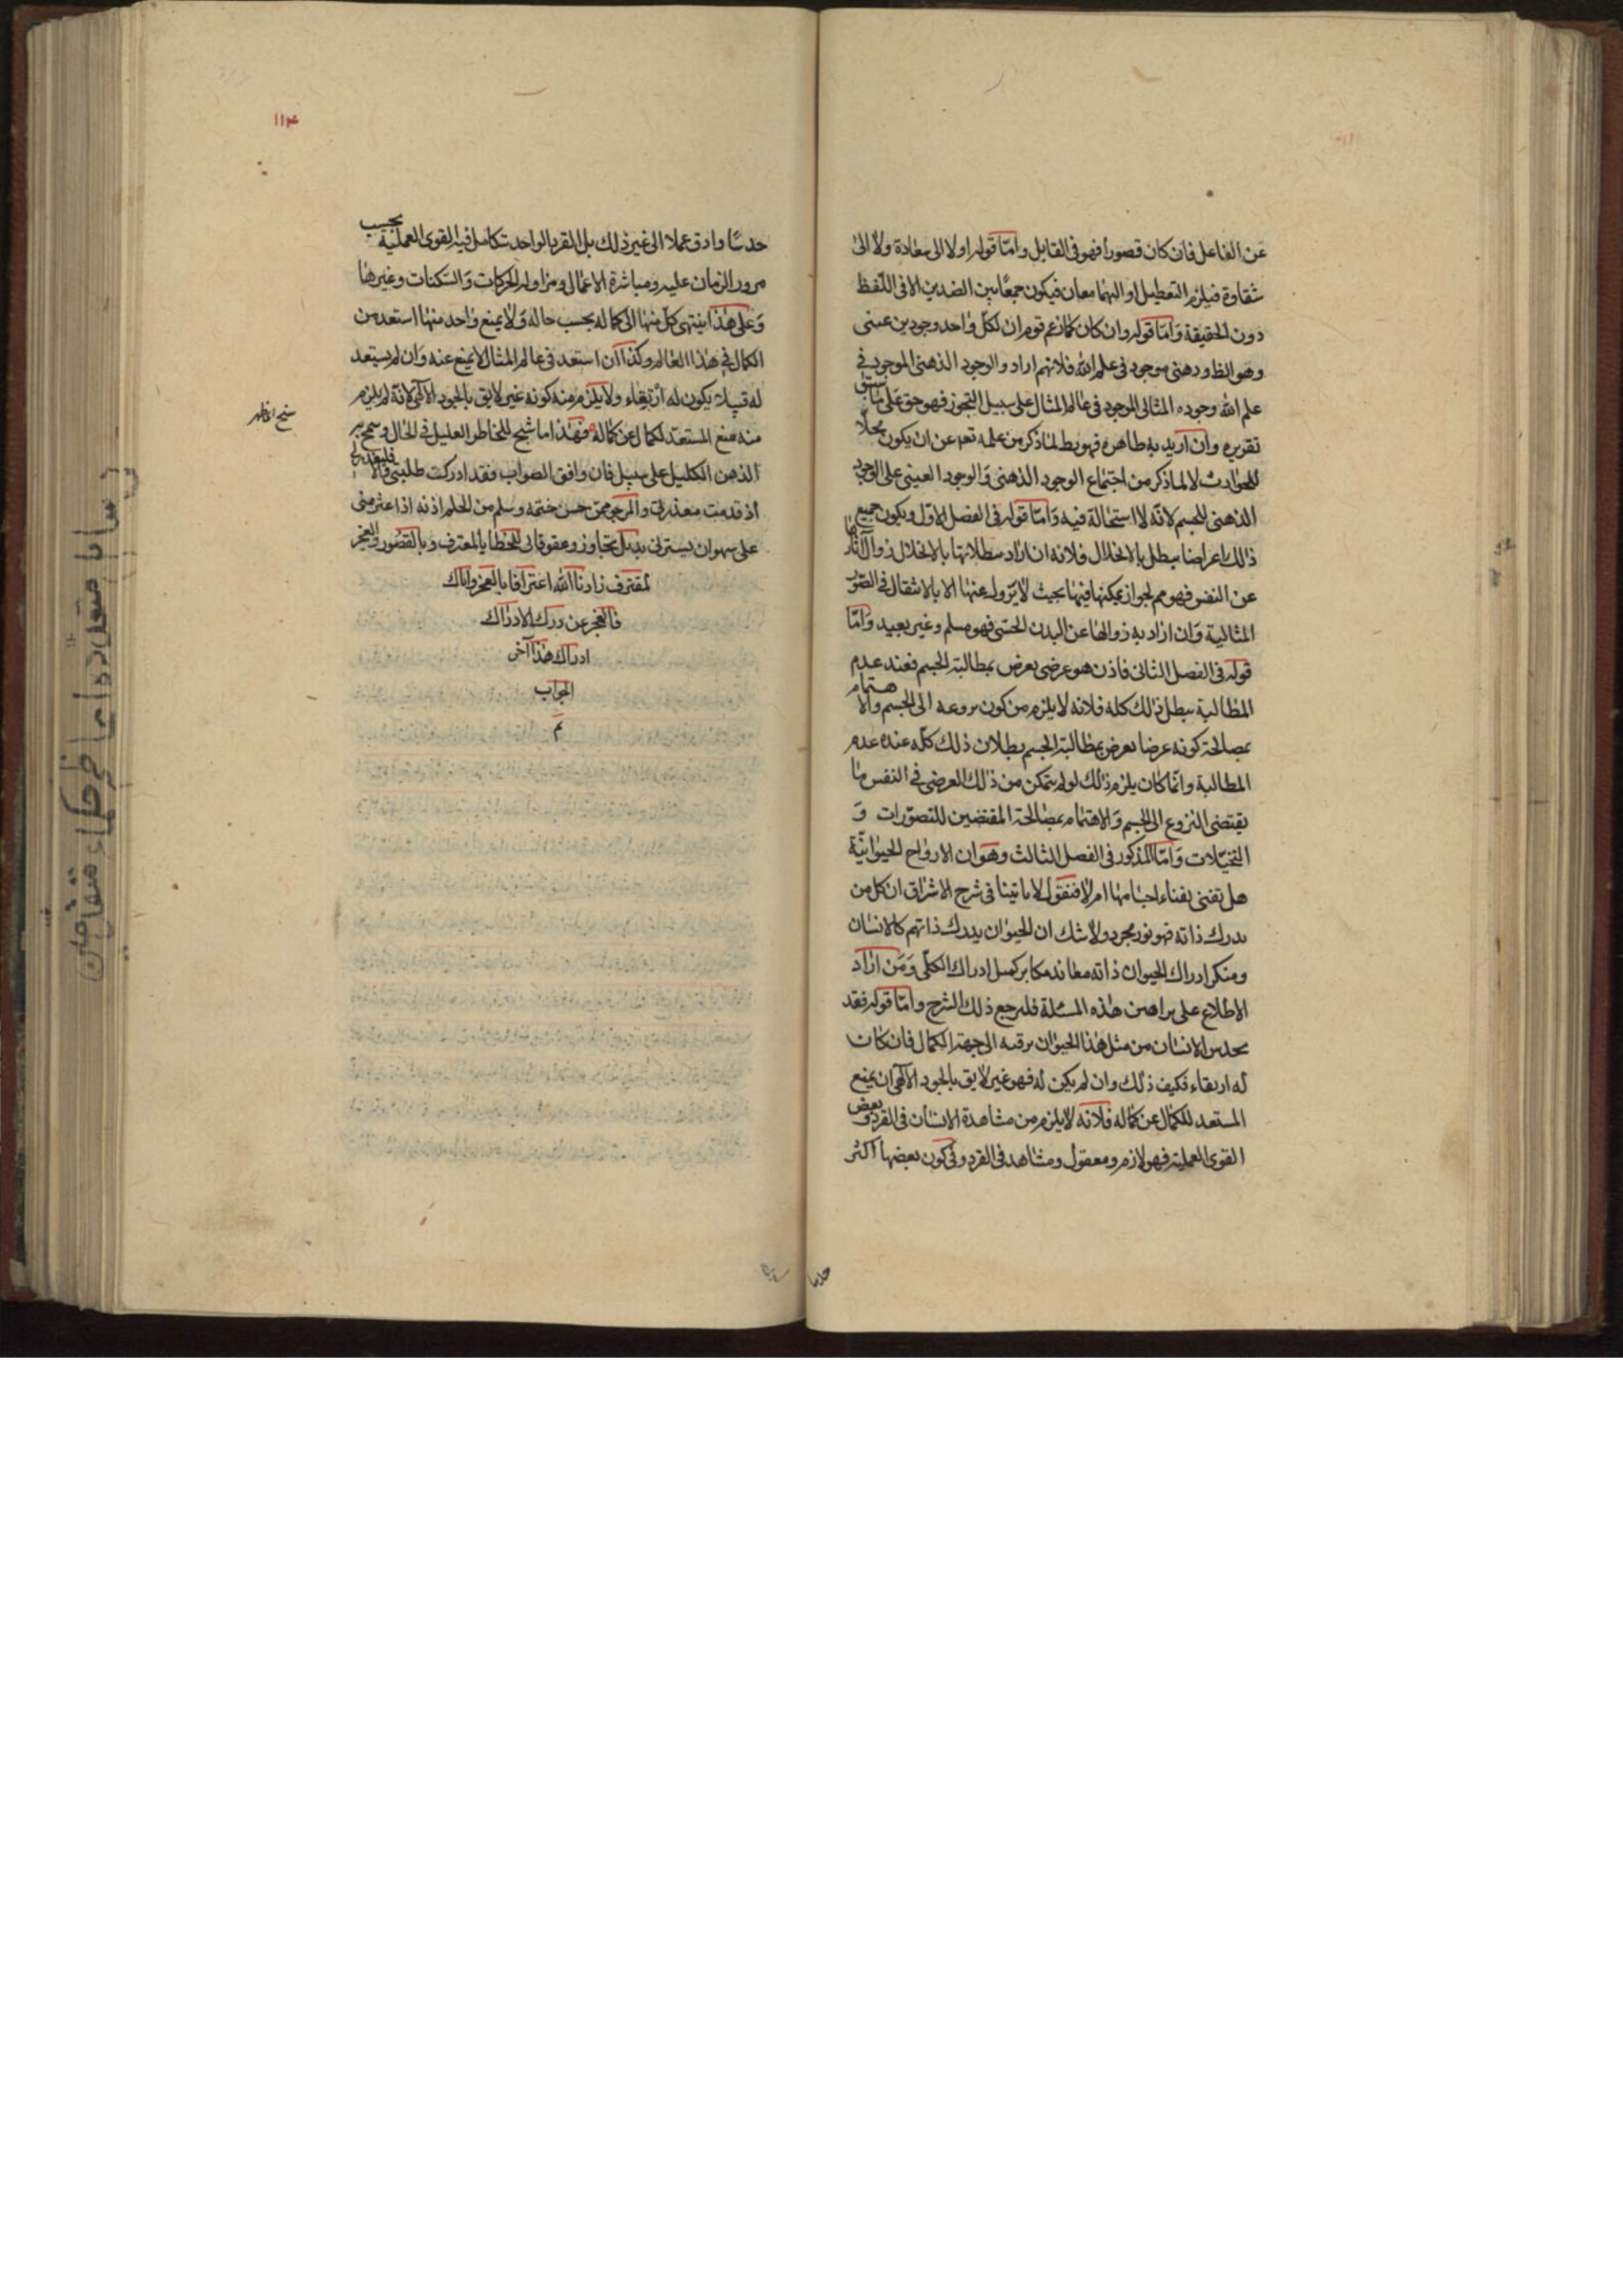 عن الفاعل فان كان قصورا فهو فى القابل وامّا قوله اولا الى سعادة ولا الى
شقاوة فيلزم التعطيل او اليهما معا فيكون جمعًا بين الضدين الا فى اللّفظ
دون الحقيقة وامّا قوله وان كان كما زعم قوم ان لكلّ واحد وجودين عينى
وهو الظ وذهنى موجود فى علم الله فلانهم ارادوا الوجود الذهنى الموجود فى
علم الله وجوده المثالى الموجود فى عالم المثال على سبيل التجوز فهو حق على ما سبق
تقريره وان اريد به ظاهره فهو بط لما ذكر من علمه تعم عن ان يكون محلّا
للحوادث لا لما ذكر من اجتماع الوجود الذهنى والوجود العينى على الوجود
الذهنى للجسم لانّه لا استحالة فيه وامّا قوله فى الفصل الاوّل ويكون جميع
ذلك اعراضا يبطل بالانحلال فلانه ان اراد ببطلانها بالانحلال زوالها
عن النفس فهو مم لجواز تمكنها فيها بحيث لا يزول عنها الا بالانتقال فى الصّور
المثالية وان اراد به زوالها عن البدن الحسّى فهو مسلم وغير بعيد وامّا
قوله فى الفصل الثانى فاذن هو عرضى يعرض بمطالبة الجسم فعند عدم
المطالبة يبطل ذلك كله فلانه لا يلزم من كون نزوعه الى الجسم والاهتمام
بمصالحه كونه عرضا يعرض بمطالبة الجسم بطلان ذلك كلّه عنده عدم
المطالبة وانّما كان يلزم ذلك لو لم يتمكن من ذلك العرضى فى النفس ما
يقتضى النزوع الى الجسم والاهتمام بمصالحه المقتضين للتصوّرات و
التخيّلات وامّا المذكور فى الفصل الثالث وهو ان الارواح الحيوانيّة
هل تفنى بفناء اجسامها ام لا فنقول لا ما تينا فى شرح الاشراق ان كل من
يدرك ذاته فهو نور مجرد ولا شك ان الحيوان يدرك ذاتهم كالانسان
ومنكر ادراك الحيوان ذاته معاند مكابر كمسل ادراك الكلّى ومن اراد
الاطلاع على براهين هذه المسئلة فليرجع ذلك الشرح وامّا قوله فقد
يحدس الانسان من مثل هذا الحيوان ترقيه الى جهة الكمال فان كان
له ارتقاء فكيف ذلك وان لم يكن له فهو غير لايق بالجود الالهى ان يمنع
المستعد للكمال عن كماله فلانه لا يلزم من مشاهدة الانسان فى القرد بعض
القوى العملية فهو لازم ومعقول ومشاهد فى القرد وفى كون بعضها اكثر
حدسا
حدسًا وادق عملا الى غير ذلك بل القرد الواحد تتكامل فيه القوى العملية بحسب
مرور الزمان عليه ومباشرة الاعمال ومزاوله الحركات والسّكنات وغيرها
وعلى هذا ينتهى كلّ منها الى كماله بحسب حاله ولا يمنع واحد منها استعد من
الكمال فى هذا العالم وكذا ان استعد فى عالم المثال لا يمنع عنه وان لم يستعد
له قبلا يكون له ارتقاء ولا يلزم منه كونه غير لايق بالجود الالهى لانّه لم يلزم
منه منع المستعد لكمال عن كماله فهذا ما شيح للخاطر العليل فى الحال وسمح به
الذهن الكليل على سبيل فان وافق الصواب فقد ادركت طلبتى والا
اذ قدمت معذرتى والمرجو ممن حسن ختمه وسلم من الحلم اذنه اذا عثر منى
على سهو ان يسترنى بذيل تجاوز وعفو فانى للخطايا لمعترف وبالقصور والعجز
لمقترف زادنا الله اعترافا بالعجز واياك
فالعجز عن درك الادراك
ادراك هذا آخر
الجواب
تم
سنح اظهر
١١٤